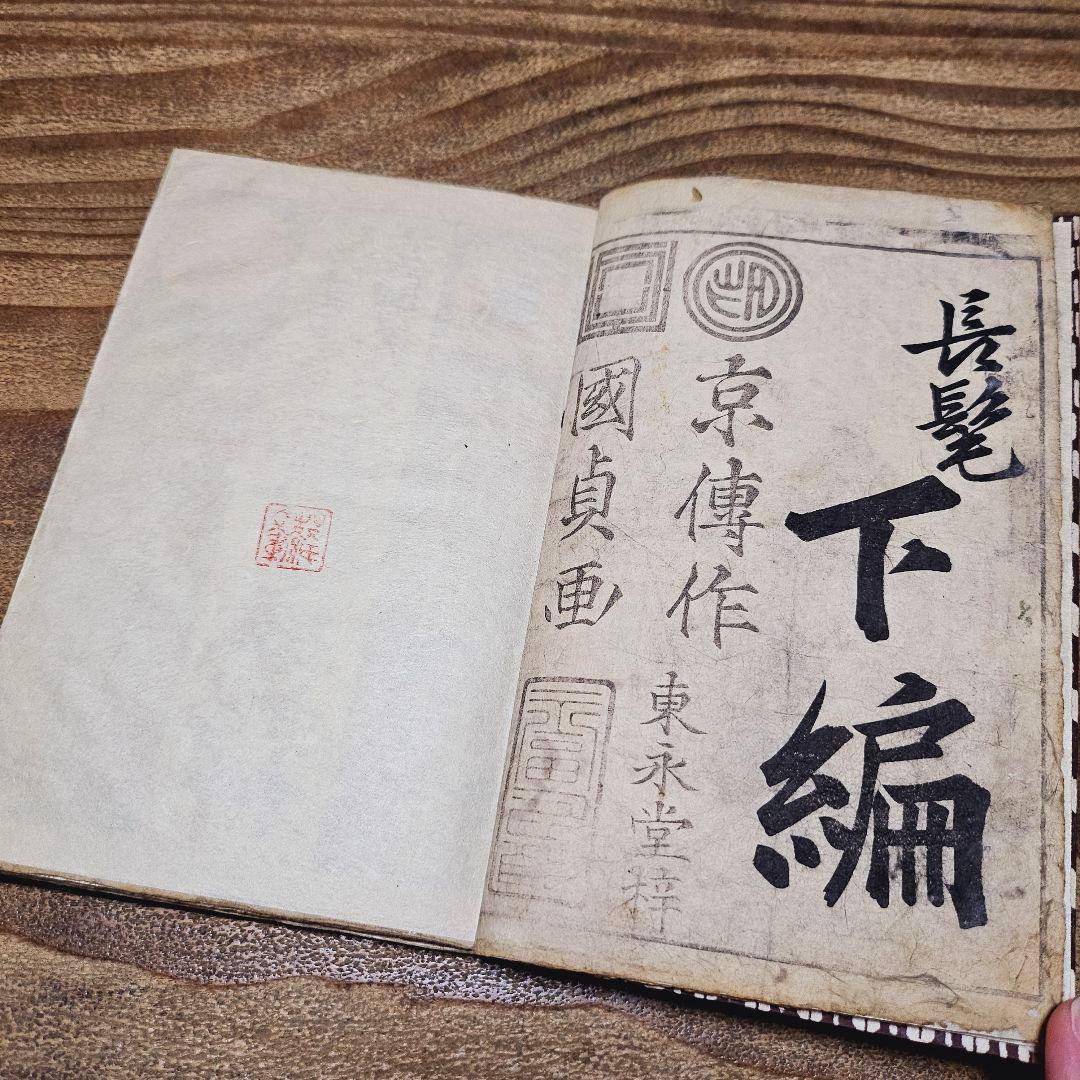 長髦
下編
京傳作
東永堂梓
國貞画